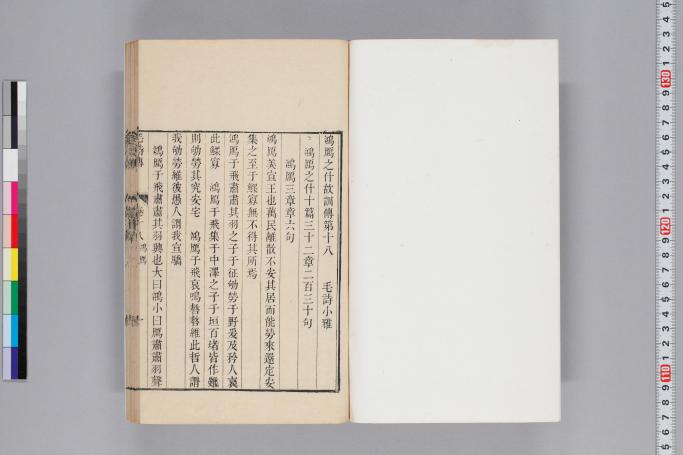 鴻鴈之什故訓傳第十八 毛詩小雅
鴻鴈之什十篇三十二章二百三十句
鴻鴈三章章六句
鴻鴈美宣王也萬民離散不安其居而能勞來還定安
集之至于鰥寡無不得其所焉
鴻鴈于飛肅肅其羽之子于征劬勞于野爰及矜人哀
此鰥寡 鴻鴈于飛集于中澤之子于垣百堵皆作雖
則劬勞其究安宅 鴻鴈于飛哀鳴嗸嗸維此哲人謂
我劬勞維彼愚人謂我宣驕
鴻鴈于飛肅肅其羽興也大曰鴻小曰鴈肅肅羽聲
130
120
110